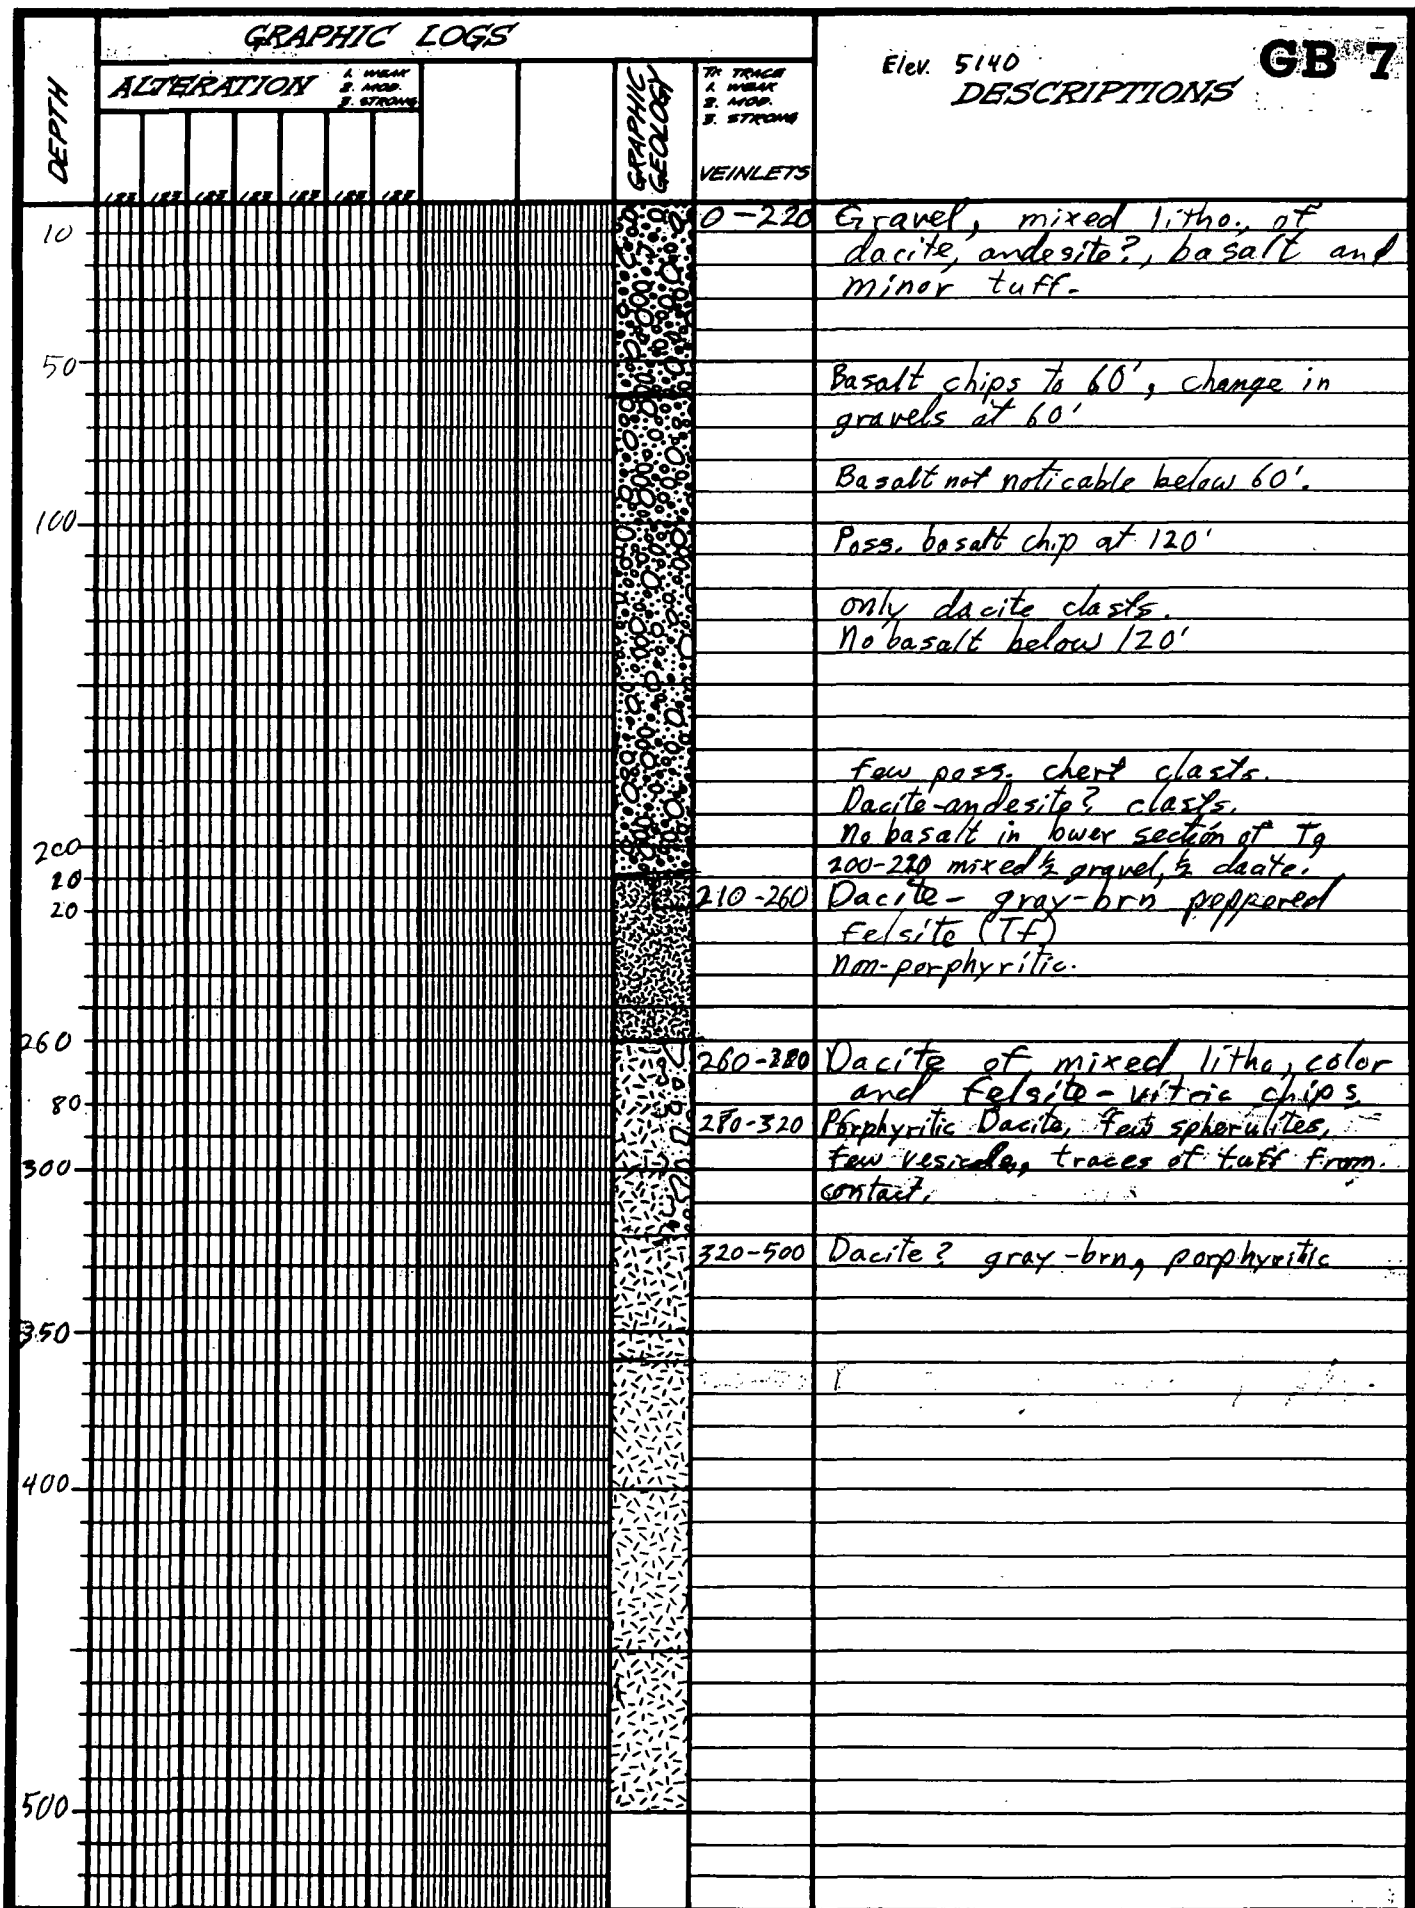 GRAPHIC LOGS
GB 7
Elev. 5140
DESCRIPTIONS
DEPTH
ALTERATION
1. WEAK
2. MOD.
3. STRONG
GRAPHIC GEOLOGY
TR TRACE
1. WEAK
2. MOD.
3. STRONG
VEINLETS
123 123 123 123 123 123 123
10
0-220 Gravel, mixed litho., of
dacite, andesite?, basalt and
minor tuff.
50
Basalt chips to 60', change in
gravels at 60'
Basalt not noticable below 60'.
100
Poss. basalt chip at 120'
only dacite clasts.
No basalt below 120'
few poss. chert clasts.
Dacite-andesite? clasts.
No basalt in lower section of Tg
200
200-220 mixed ½ gravel, ½ dacite.
10
210-260 Dacite - gray-brn peppered
20
Felsite (Tf)
Non-porphyritic.
260
260-320 Dacite of mixed litho, color
and felsite-vitric chips
80
280-320 Porphyritic Dacite, few spherulites,
few vesicles, traces of tuff from
300
contact.
320-500 Dacite? gray-brn, porphyritic
350
400
500